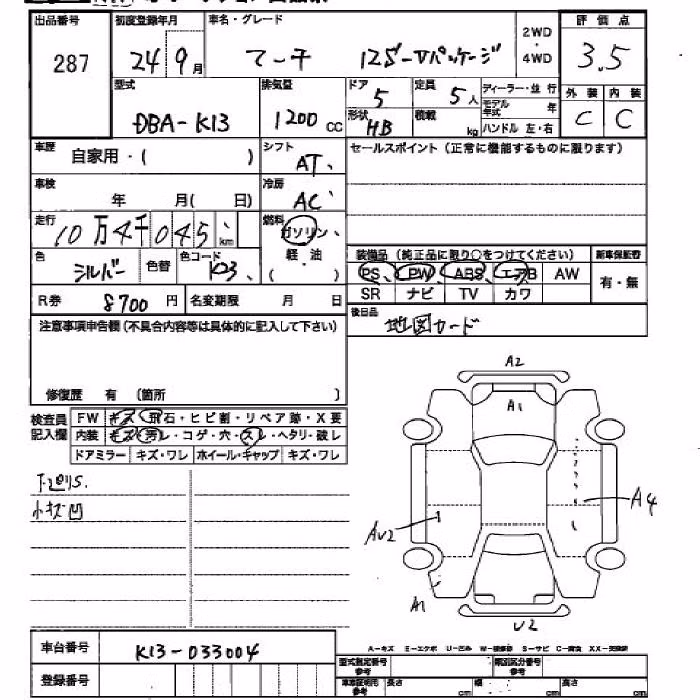 出品番号 初度登録年月 車名・グレード 2WD・4WD 評価点
287 24 9月 マーチ 12S-Vパッケージ 3.5
型式 排気量 ドア 定員 ディーラー・並行 外装 内装
DBA-K13 1200cc 5 5人 モデル年式 年 C C
形状 HB 積載 kg ハンドル 左・右
車歴 自家用・( ) シフト AT、 セールスポイント(正常に機能するものに限ります)
車検 年 月( 日) 冷房 AC、
走行 10万4千045、km 燃料 ガソリン、軽・油 ( )
色 シルバー 色替 色コード K23、
装備品(純正品に限り○をつけてください) 新車保証書
PS、 PW、 ABS、 エアB AW 有・無
SR ナビ TV カワ
R券 8700円 名変期限 月 日 後日品 地図カード
注意事項申告欄(不具合内容等は具体的に記入して下さい)
修復歴 有 (箇所 )
検査員記入欄 FW キズ・飛石・ヒビ割・リペア跡・X要
内装 キズ・汚レ・コゲ・穴・スレ・ヘタリ・破レ
ドアミラー キズ・ワレ ホイール・キャップ キズ・ワレ
小キズ凹
A2
A1
A4
AU2
A1
U2
車台番号 K13-033004
A-キズ E-エクボ U-凹み S-サビ C-腐食
登録番号 型式指定番号 参考 類別区分番号 参考
長さ cm 幅 cm 高さ cm